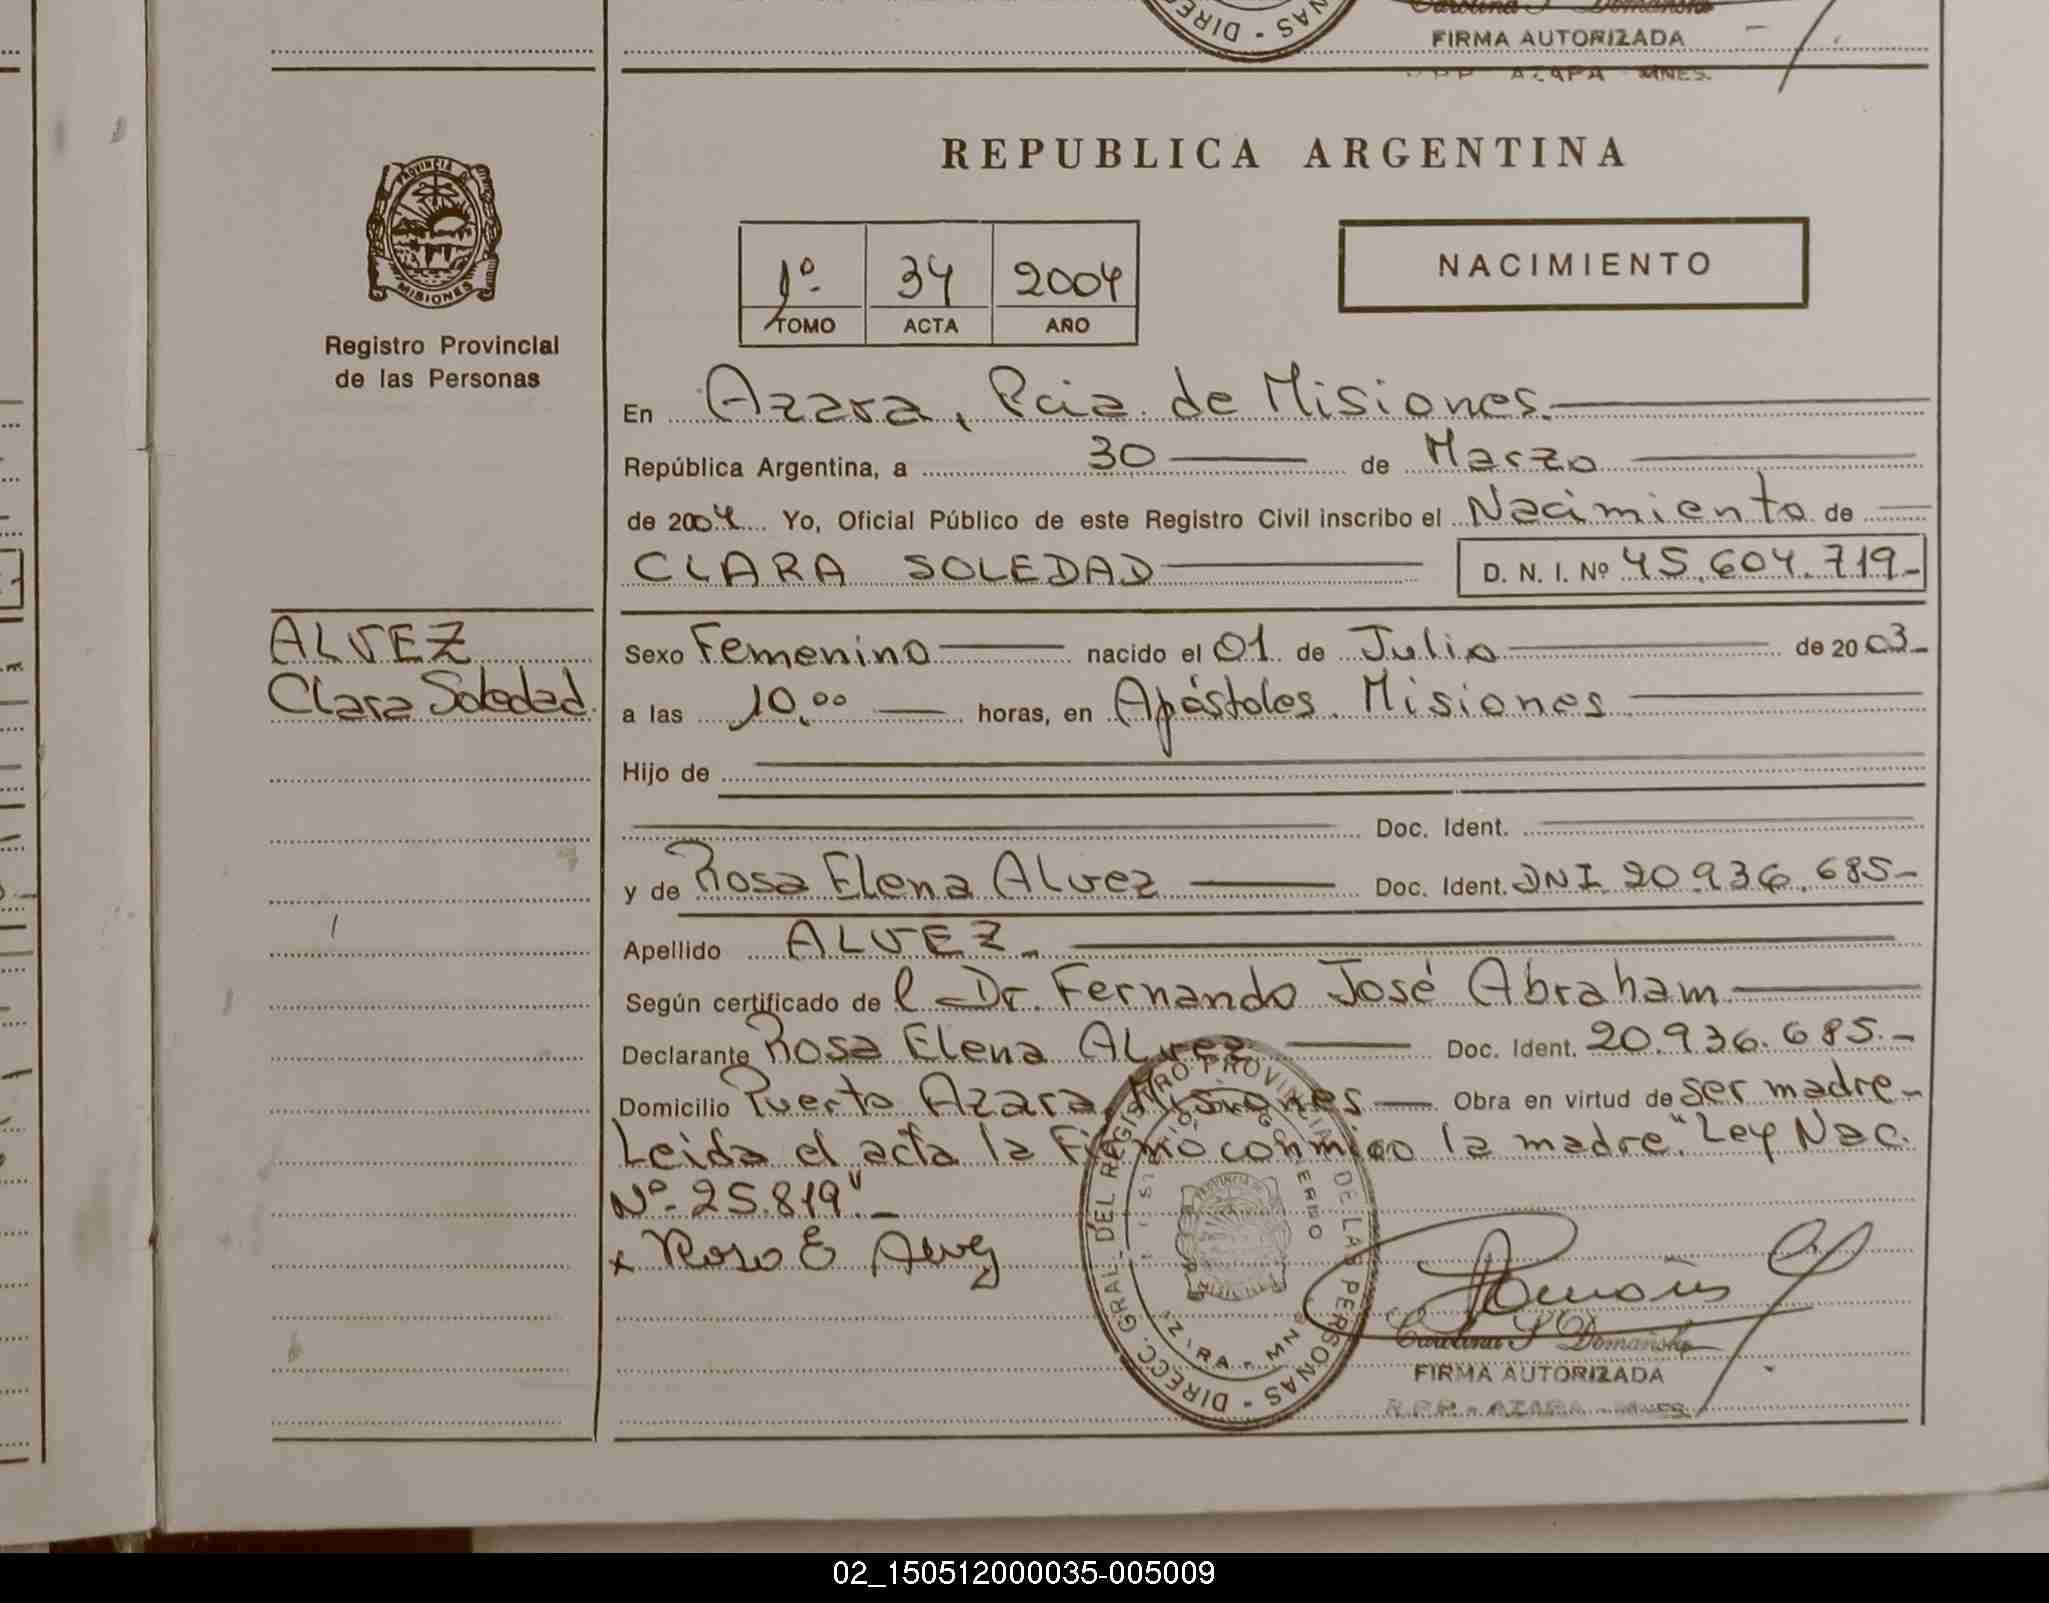 DIRECC. - PERSONAS
Carolina S. Domanski
FIRMA AUTORIZADA
R.P.P. AZARA MNES.
REPUBLICA ARGENTINA
PROVINCIA DE
MISIONES
Registro Provincial
de las Personas
1º 34 2004
TOMO ACTA AÑO
NACIMIENTO
En Azara, Pcia. de Misiones.
República Argentina, a 30 de Marzo
de 2004 Yo, Oficial Público de este Registro Civil inscribo el Nacimiento de
CLARA SOLEDAD D. N. I. Nº 45.604.719-
ALVEZ
Clara Soledad
Sexo Femenino nacido el 01 de Julio de 2003-
a las 10.00 horas, en Apóstoles. Misiones
Hijo de
Doc. Ident.
y de Rosa Elena Alvez Doc. Ident. DNI 20.936.685-
Apellido ALVEZ-
Según certificado de l Dr. Fernando José Abraham
Declarante Rosa Elena Alvez Doc. Ident. 20.936.685.-
Domicilio Puerto Azara, Misiones Obra en virtud de ser madre-
Leida el acta la Firmó conmigo la madre. "Ley Nac.
Nº 25.819".-
x Rosa E Alvez
DIRECC. GRAL. DEL REGISTRO PROVINCIAL DE LAS PERSONAS -
Carolina S. Domanski
FIRMA AUTORIZADA
R.P.P. - AZARA - MNES.
02_150512000035-005009